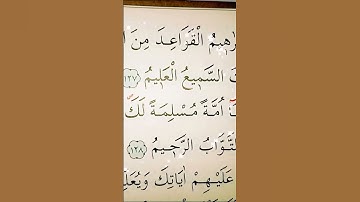 هِيمُ الْقَوَاعِدَ مِنَ ا
السَّمِيعُ الْعَلِيمُ ﴿١٢٧﴾
اُمَّةً مُسْلِمَةً لَكَ
التَّوَّابُ الرَّحِيمُ ﴿١٢٨﴾
عَلَيْهِمْ اٰيَاتِكَ وَيُعَلِّ